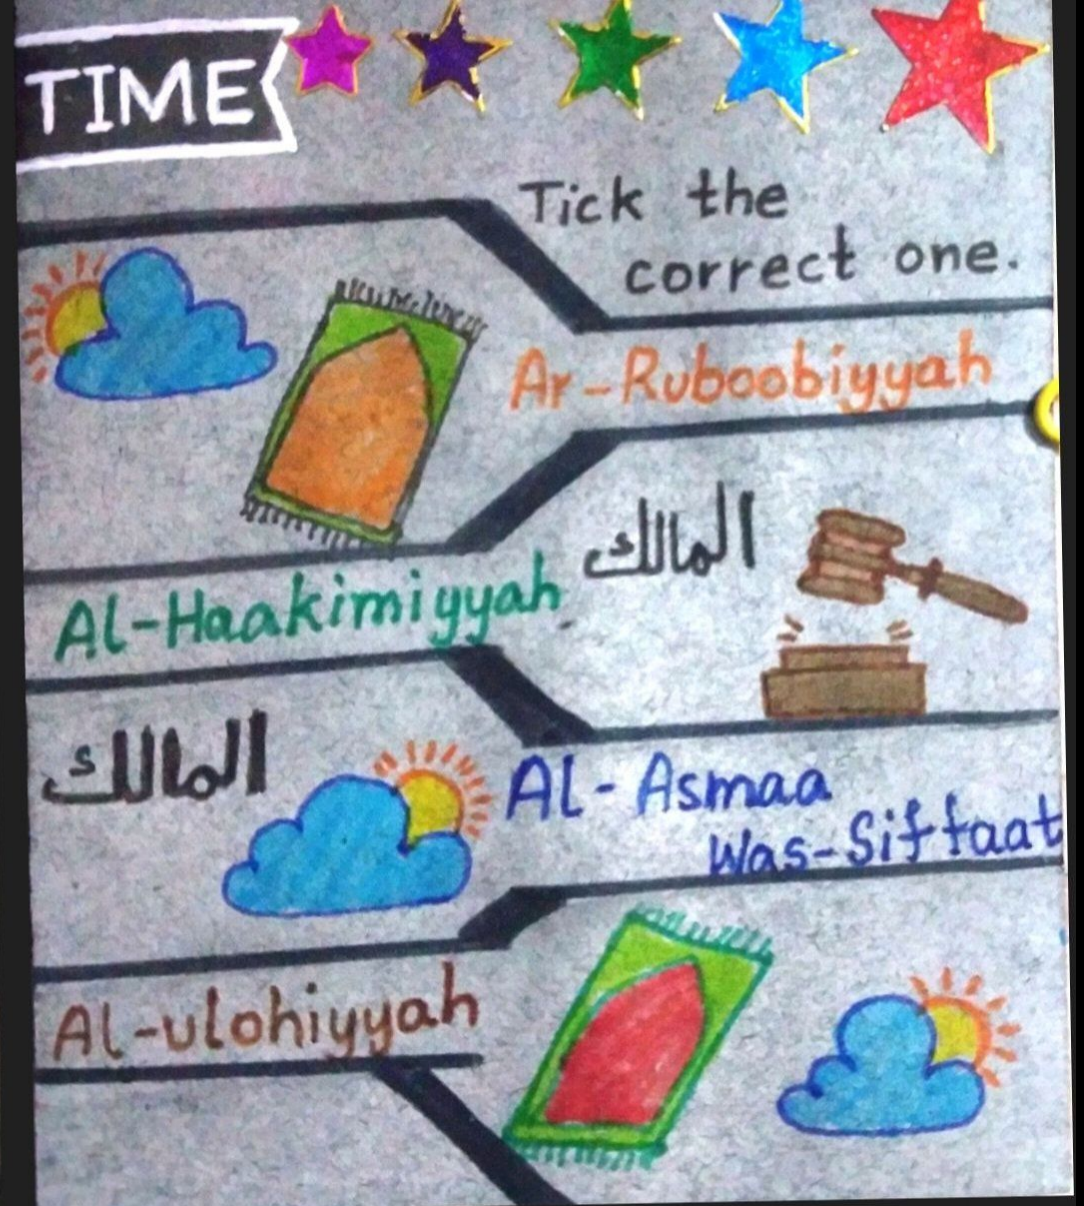 TIME
Tick the
correct one.
Ar-Ruboobiyyah
المالك
Al-Haakimiyyah
المالك
Al-Asmaa
Was-Siffaat
Al-ulohiyyah